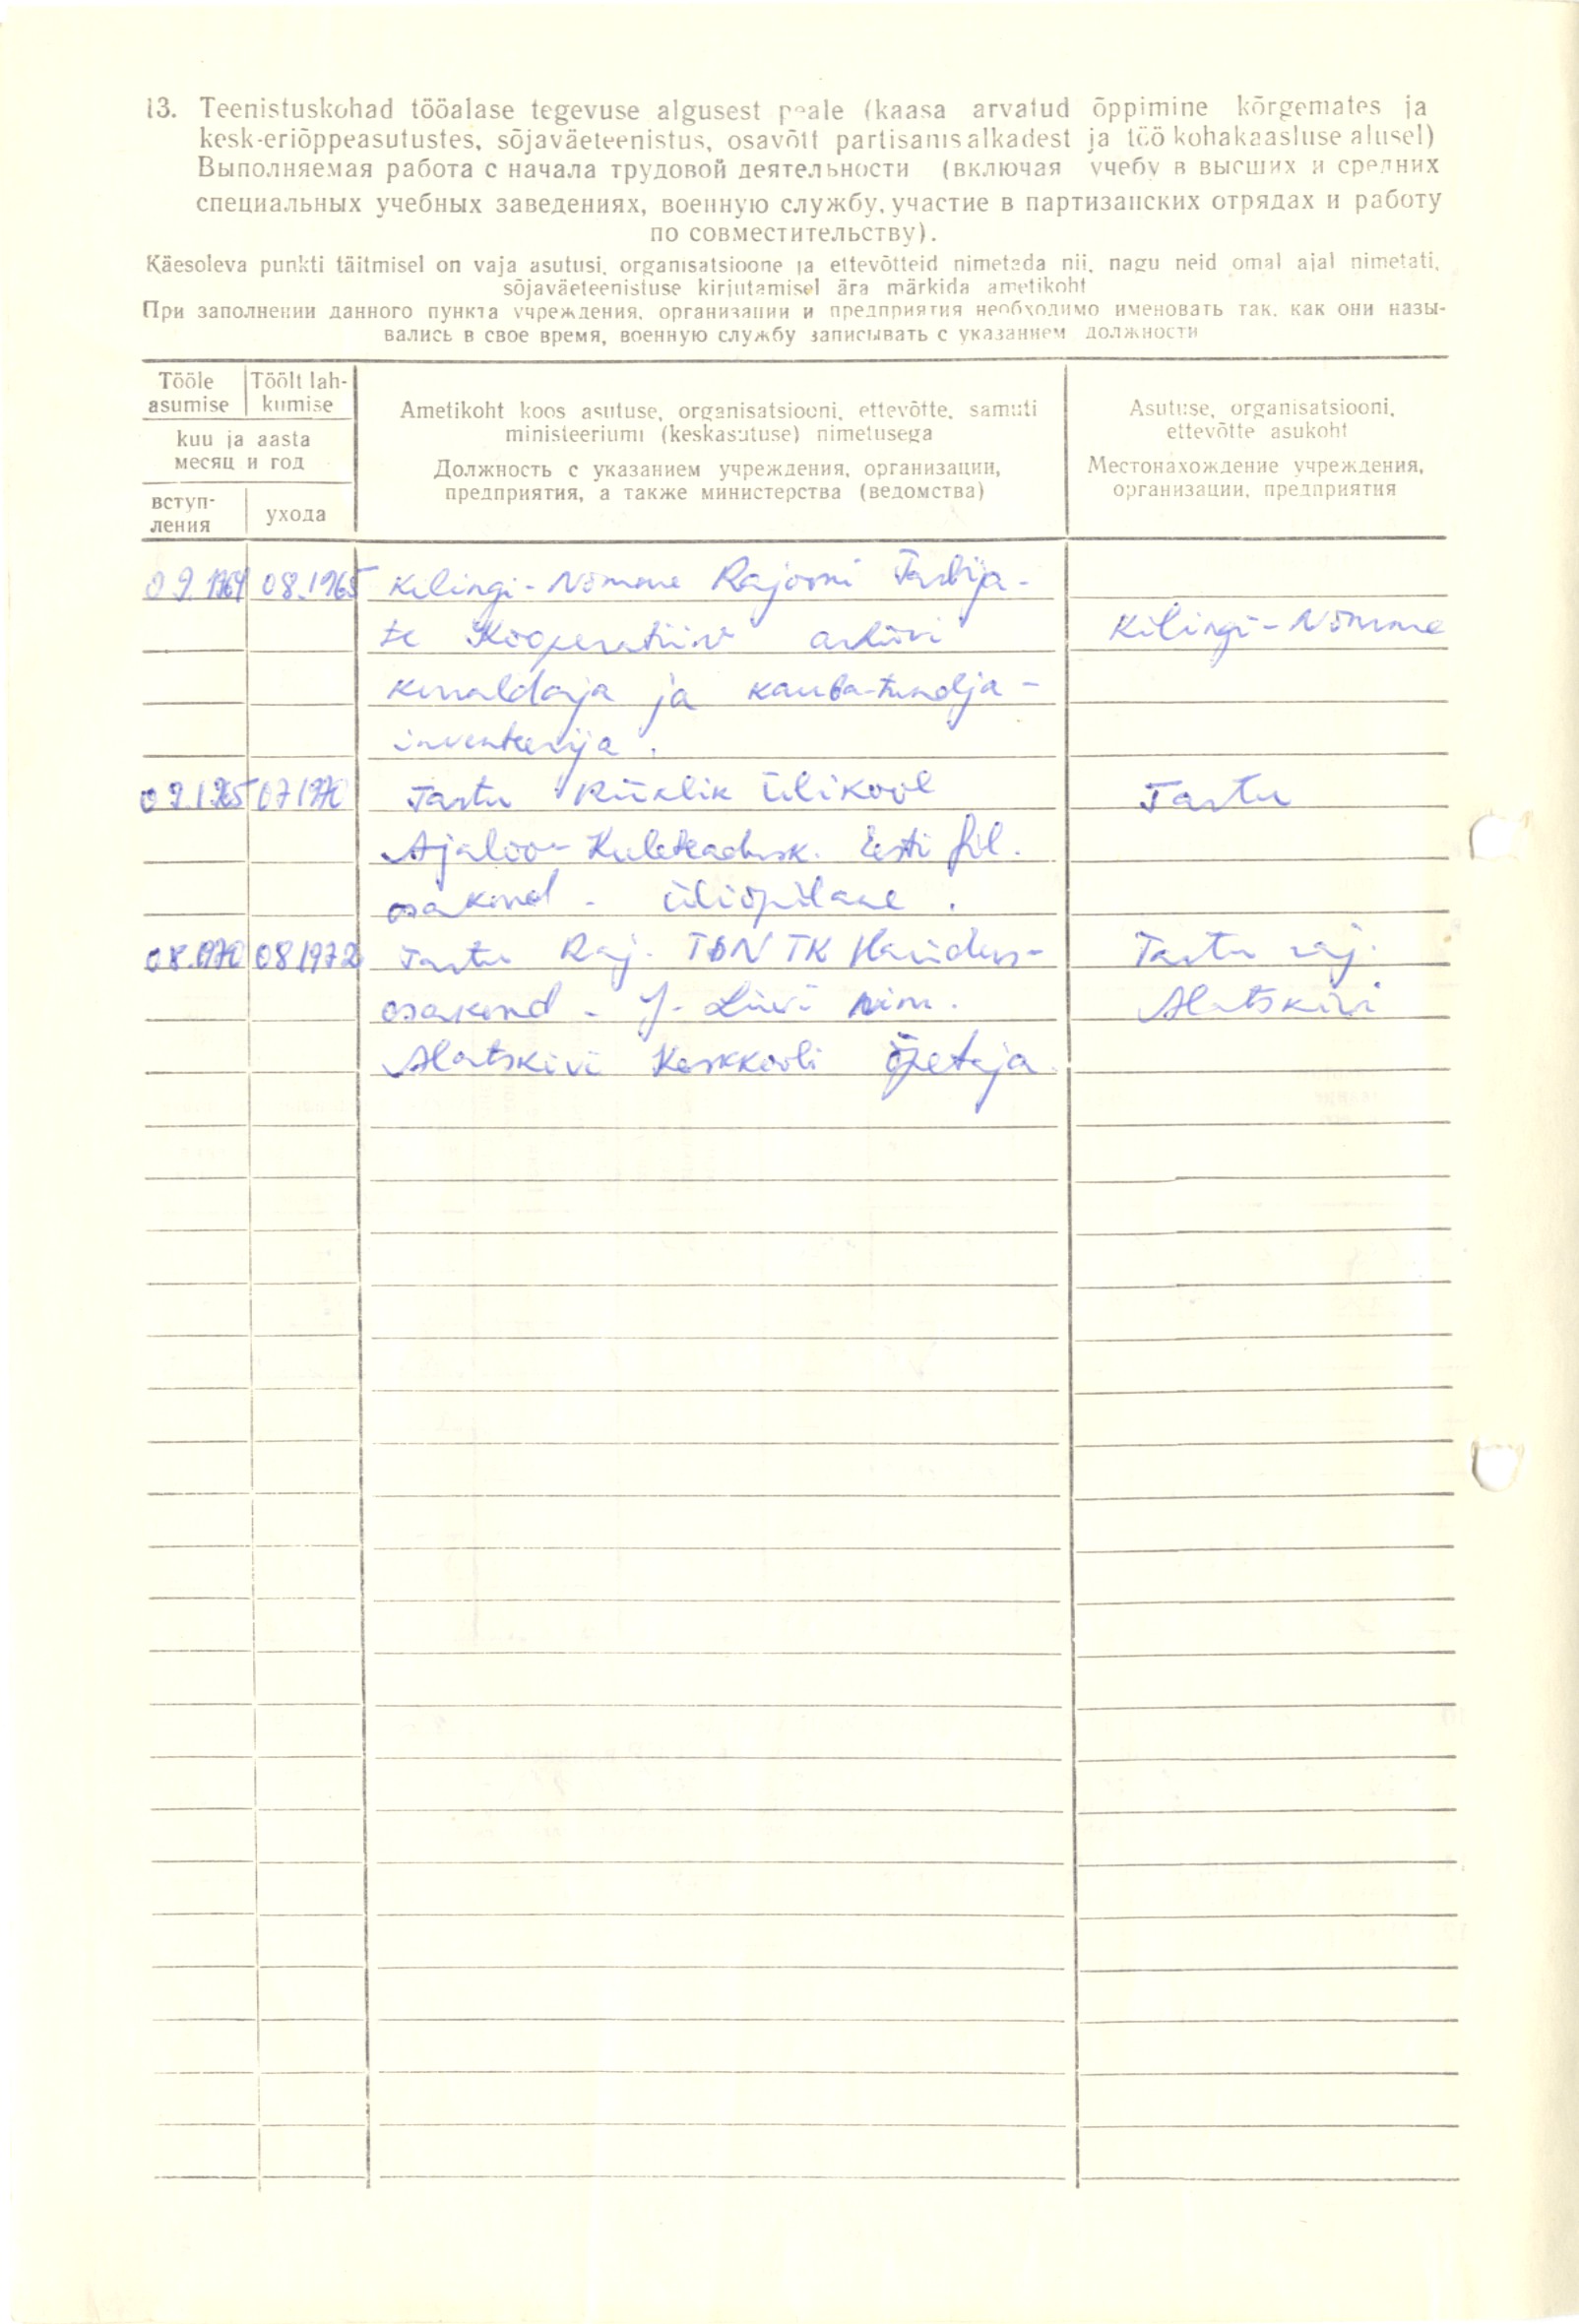 13. Teenistuskohad tööalase tegevuse algusest peale (kaasa arvatud õppimine kõrgemates ja
kesk-eriõppeasutustes, sõjaväeteenistus, osavõtt partisanisalkadest ja töö kohakaasluse alusel)
Выполняемая работа с начала трудовой деятельности (включая учебу в высших и средних
специальных учебных заведениях, военную службу, участие в партизанских отрядах и работу
по совместительству).
Käesoleva punkti täitmisel on vaja asutusi, organisatsioone ja ettevõtteid nimetada nii, nagu neid omal ajal nimetati,
sõjaväeteenistuse kirjutamisel ära märkida ametikoht
При заполнении данного пункта учреждения, организации и предприятия необходимо именовать так, как они назы-
вались в свое время, военную службу записывать с указанием должности
Tööle asumise
Töölt lah-
kumise
kuu ja aasta
месяц и год
вступ-
ления
ухода
Ametikoht koos asutuse, organisatsiooni, ettevõtte, samuti
ministeeriumi (keskasutuse) nimetusega
Должность с указанием учреждения, организации,
предприятия, а также министерства (ведомства)
Asutuse, organisatsiooni,
ettevõtte asukoht
Местонахождение учреждения,
организации, предприятия
09.1964 08.1965 Kilingi-Nõmme Rajooni Tarbija-
te Kooperatiivi arhiivi Kilingi-Nõmme
korraldaja ja kauba-tundja-
inventeerija.
09.1965 07.1970 Tartu Riiklik Ülikool Tartu
Ajaloo-Keeleteadusk. Eesti fil.
osakond - üliõpilane.
08.1970 08.1972 Tartu Raj. TSN TK Haridus- Tartu raj.
osakond - J. Liivi nim. Alatskivi
Alatskivi Keskkooli õpetaja